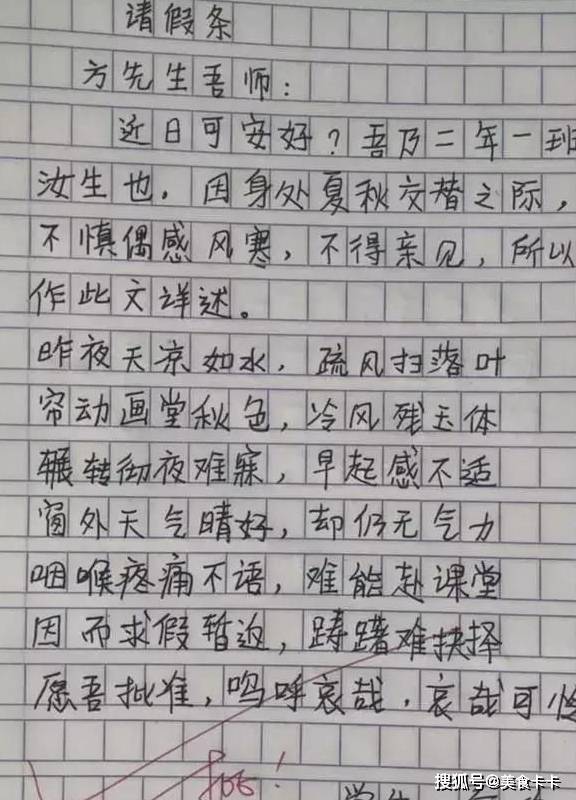 请假条
方先生吾师：
近日可安好？吾乃二年一班
汝生也，因身处夏秋交替之际，
不慎偶感风寒，不得亲见，所以
作此文详述。
昨夜天凉如水，疏风扫落叶
帘动画堂秋色，冷风残玉体
辗转彻夜难寐，早起感不适
窗外天气晴好，却仍无气力
咽喉疼痛不语，难能赴课堂
因而求假暂返，踌躇难抉择
愿吾批准，呜呼哀哉，哀哉可怜
批！
搜狐号@美食卡卡